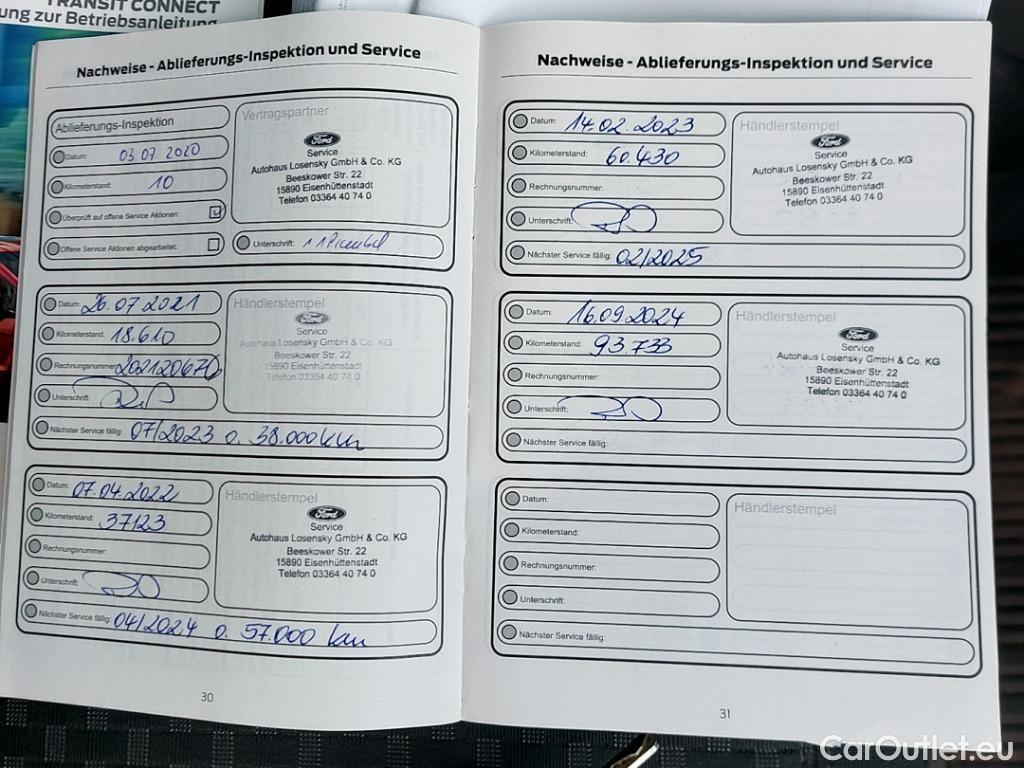 TRANSIT CONNECT
ung zur Betriebsanleitung
Nachweise - Ablieferungs-Inspektion und Service
Ablieferungs-Inspektion
Datum: 03.07.2020
Kilometerstand: 10
Überprüft auf offene Service Aktionen:
Offene Service Aktionen abgearbeitet:
Vertragspartner
Ford
Service
Autohaus Losensky GmbH & Co. KG
Beeskower Str. 22
15890 Eisenhüttenstadt
Telefon 03364 40 74 0
Unterschrift:
Datum: 26.07.2021
Kilometerstand: 18.610
Rechnungsnummer: 202120670
Unterschrift:
Nächster Service fällig: 07/2023 o. 38.000 km
Händlerstempel
Ford
Service
Autohaus Losensky GmbH & Co. KG
Beeskower Str. 22
15890 Eisenhüttenstadt
Telefon 03364 40 74 0
Datum: 07.04.2022
Kilometerstand: 37123
Rechnungsnummer:
Unterschrift:
Nächster Service fällig: 04/2024 o. 57.000 km
Händlerstempel
Ford
Service
Autohaus Losensky GmbH & Co. KG
Beeskower Str. 22
15890 Eisenhüttenstadt
Telefon 03364 40 74 0
30
Nachweise - Ablieferungs-Inspektion und Service
Datum: 14.02.2023
Kilometerstand: 60.430
Rechnungsnummer:
Unterschrift:
Nächster Service fällig: 02/2025
Händlerstempel
Ford
Service
Autohaus Losensky GmbH & Co. KG
Beeskower Str. 22
15890 Eisenhüttenstadt
Telefon 03364 40 74 0
Datum: 16.09.2024
Kilometerstand: 93.733
Rechnungsnummer:
Unterschrift:
Nächster Service fällig:
Händlerstempel
Ford
Service
Autohaus Losensky GmbH & Co. KG
Beeskower Str. 22
15890 Eisenhüttenstadt
Telefon 03364 40 74 0
Datum:
Kilometerstand:
Rechnungsnummer:
Unterschrift:
Nächster Service fällig:
Händlerstempel
31
CarOutlet.eu